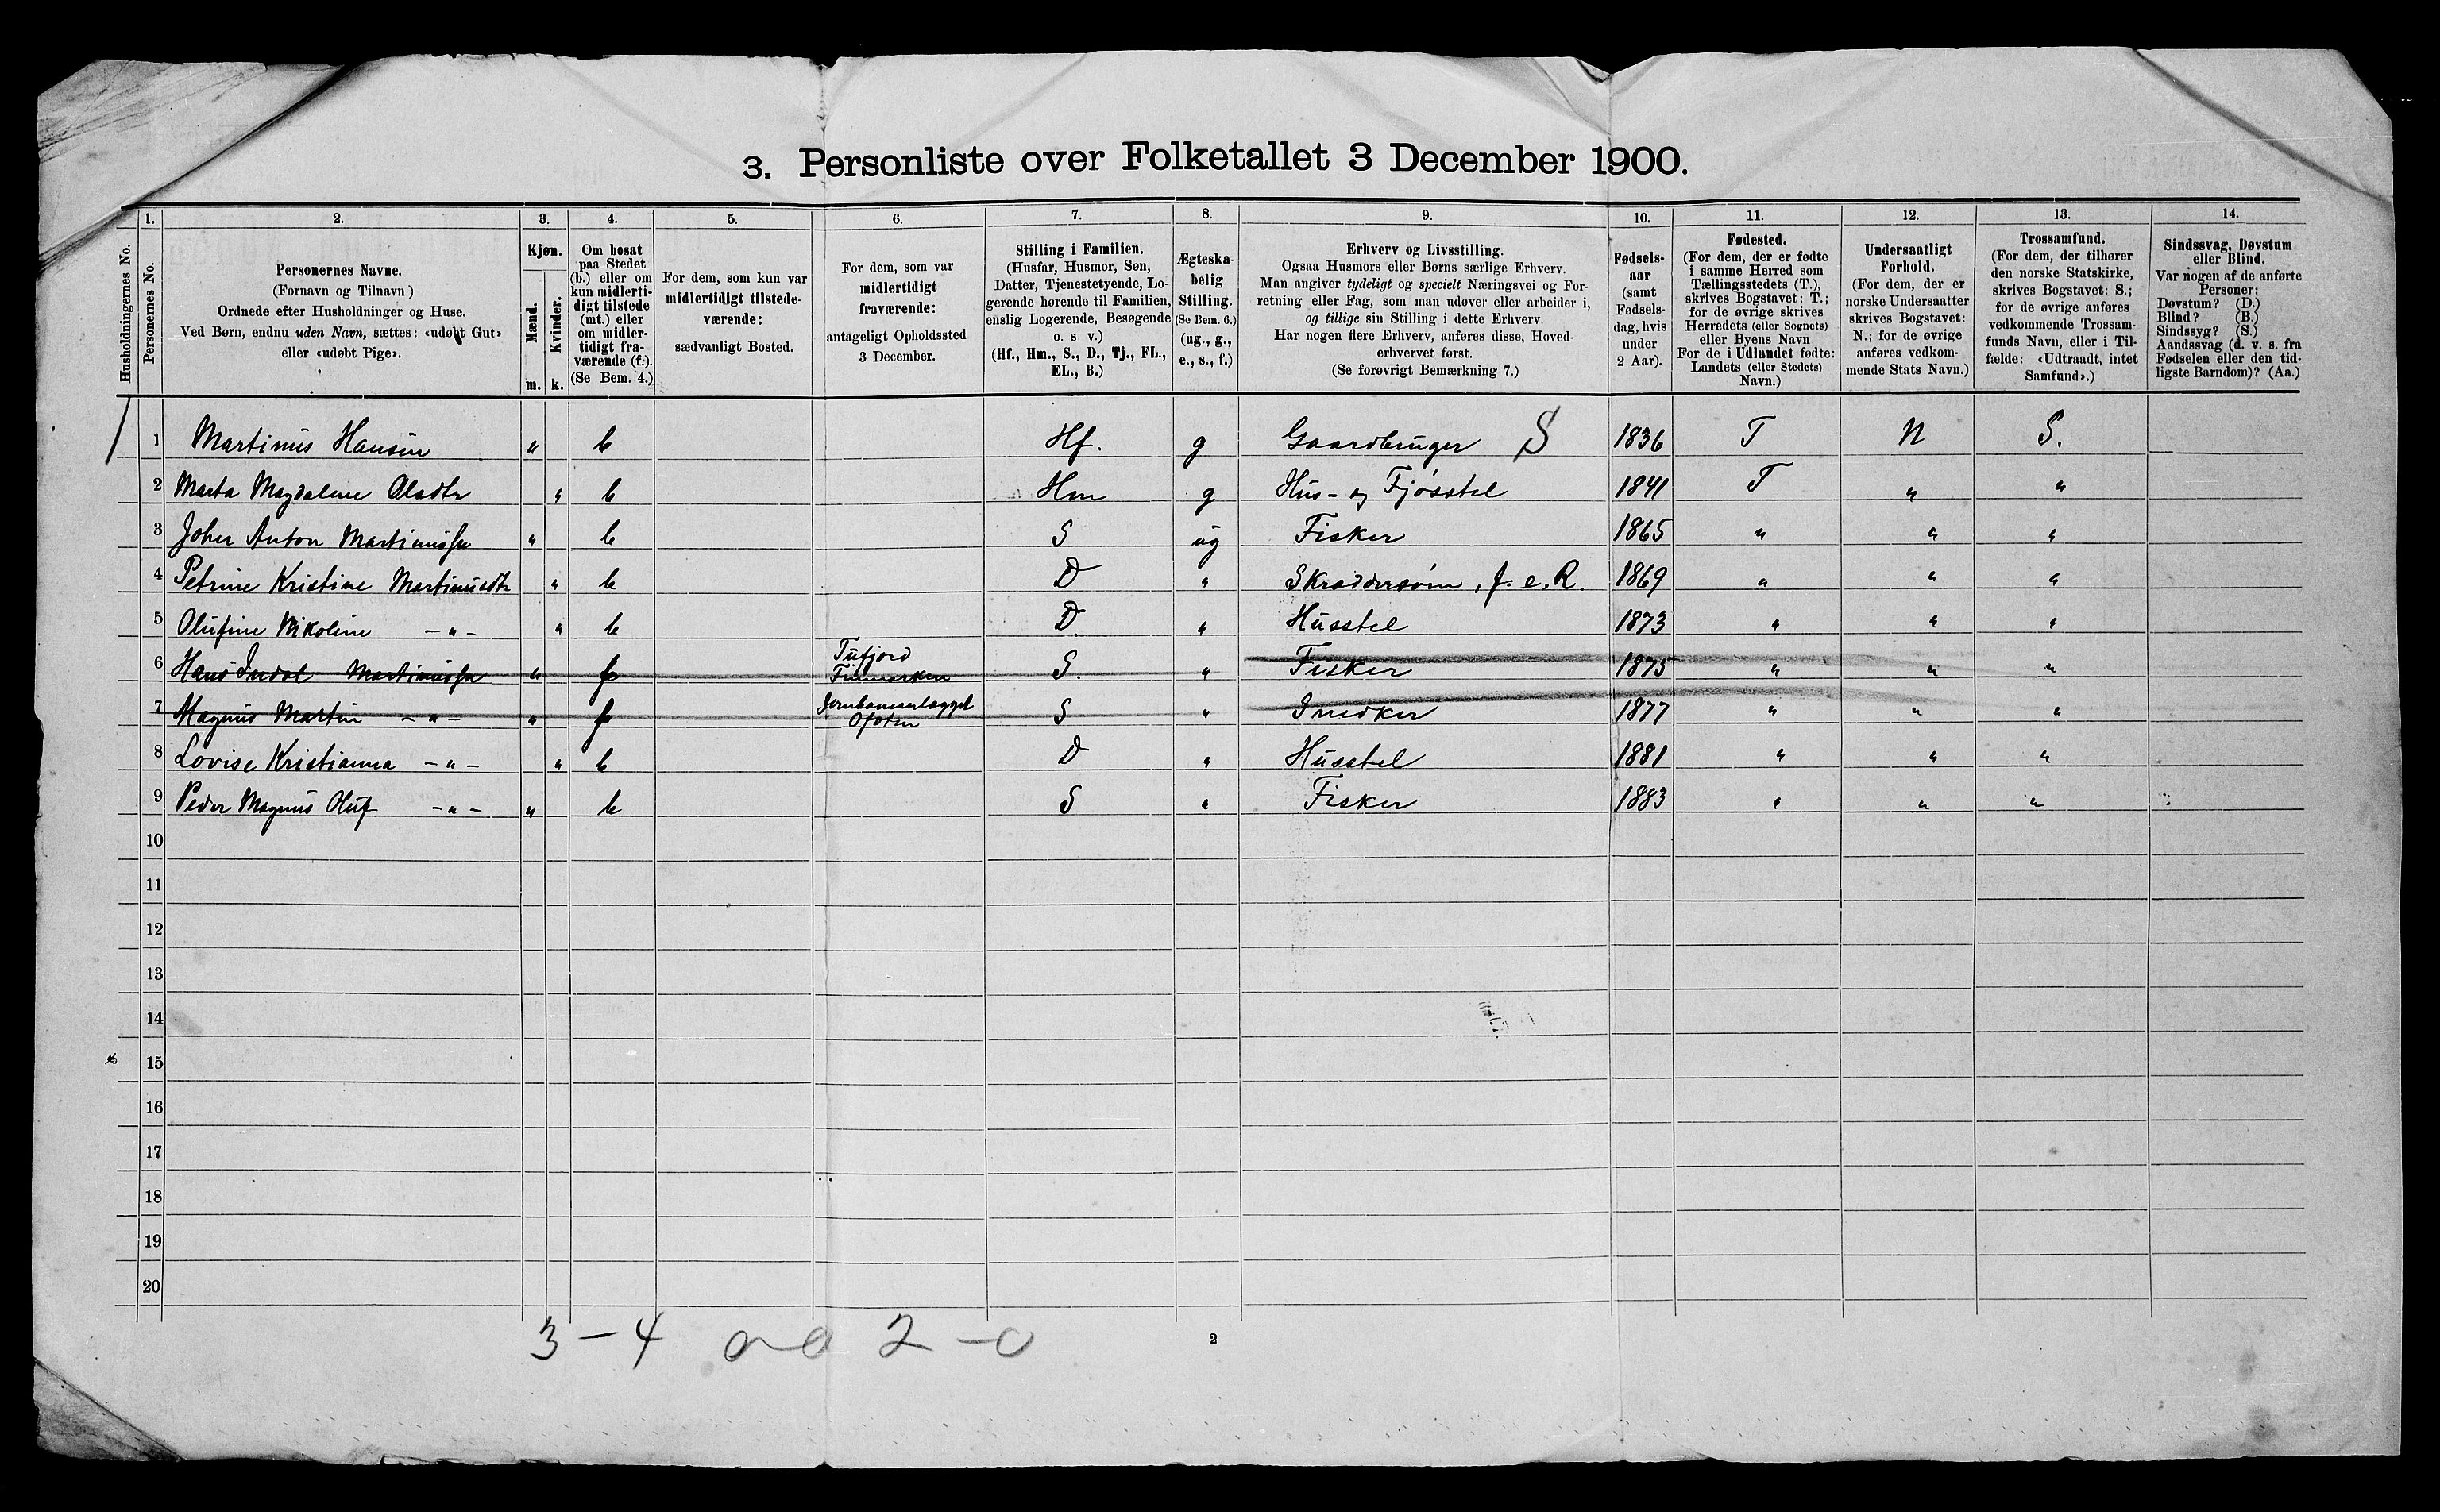 3. Personliste over Folketallet 3 December 1900.
1. 2. 3. 4. 5. 6. 7. 8. 9. 10. 11. 12. 13. 14.
Husholdningernes No.
Personernes No.
Personernes Navne.
(Fornavn og Tilnavn)
Ordnede efter Husholdninger og Huse.
Ved Børn, endnu uden Navn, sættes: «udøbt Gut»
eller «udøbt Pige».
Kjøn.
Mænd.
Kvinder.
m. k.
Om bosat
paa Stedet
(b.) eller om
kun midlerti-
digt tilstede
(mt.) eller
om midler-
tidigt fra-
værende (f.).
(Se Bem. 4.)
For dem, som kun var
midlertidigt tilstede-
værende:
sædvanligt Bosted.
For dem, som var
midlertidigt
fraværende:
antageligt Opholdssted
3 December.
Stilling i Familien.
(Husfar, Husmor, Søn,
Datter, Tjenestetyende, Lo-
gerende hørende til Familien,
enslig Logerende, Besøgende
o. s. v.)
(Hf., Hm., S., D., Tj., FL.,
EL., B.)
Ægteska-
belig
Stilling.
(Se Bem. 6.)
(ug., g.,
e., s., f.)
Erhverv og Livsstilling.
Ogsaa Husmors eller Børns særlige Erhverv.
Man angiver tydeligt og specielt Næringsvei og For-
retning eller Fag, som man udøver eller arbeider i,
og tillige sin Stilling i dette Erhverv.
Har nogen flere Erhverv, anføres disse, Hoved-
erhvervet først.
(Se forøvrigt Bemærkning 7.)
Fødsels-
aar
(samt
Fødsels-
dag, hvis
under
2 Aar).
Fødested.
(For dem, der er fødte
i samme Herred som
Tællingsstedets (T.),
skrives Bogstavet: T.;
for de øvrige skrives
Herredets (eller Sognets)
eller Byens Navn
For de i Udlandet fødte:
Landets (eller Stedets)
Navn.)
Undersaatligt
Forhold.
(For dem, der er
norske Undersaatter
skrives Bogstavet:
N.; for de øvrige
anføres vedkom-
mende Stats Navn.)
Trossamfund.
(For dem, der tilhører
den norske Statskirke,
skrives Bogstavet: S.;
for de øvrige anføres
vedkommende Trossam-
funds Navn, eller i Til-
fælde: «Udtraadt, intet
Samfund».)
Sindssvag, Døvstum
eller Blind.
Var nogen af de anførte
Personer:
Døvstum? (D.)
Blind? (B.)
Sindssyg? (S.)
Aandssvag (d. v. s. fra
Fødselen eller den tid-
ligste Barndom)? (Aa.)
1 Martinus Hansen " b Hf. g Gaardbruger S 1836 T N S.
2 Marta Magdalene Olsdtr " b Hm g Hus- og Fjøsstel 1841 T " "
3 Johan Anton Martinussen " b S ug Fisker 1865 " " "
4 Petrine Kristine Martinusdtr " b D " Skræddersøm, f. e. R. 1869 " " "
5 Olufine Nikoline - " - " b D. " Husstel 1873 " " "
6 Hans Martinussen " f Tufjord Finmarken S. " Fisker 1875 " " "
7 Magnus Martin - " - " f Jernbaneanlægget Ofoten S " Snedker 1877 " " "
8 Lovise Kristianna - " - " b D " Husstel 1881 " " "
9 Peder Magnus Oluf - " - " b S " Fisker 1883 " " "
10
11
12
13
14
15
16
17
18
19
20
3 - 4 0-0 2 - 0
2